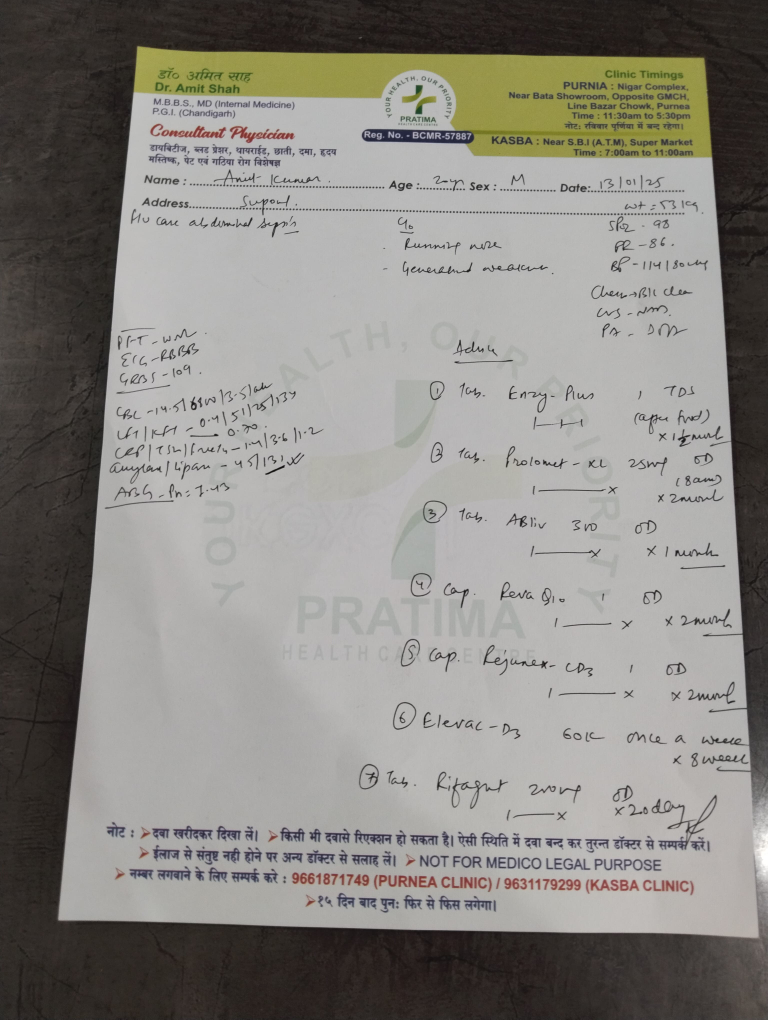 डॉ० अमित साह
Dr. Amit Shah
M.B.B.S., MD (Internal Medicine)
P.G.I. (Chandigarh)
Consultant Physician
डायबिटीज, ब्लड प्रेशर, थायराईड, छाती, दमा, हृदय
मस्तिष्क, पेट एवं गठिया रोग विशेषज्ञ
YOUR HEALTH, OUR PRIORITY
PRATIMA
HEALTH CARE CENTRE
Reg. No. - BCMR-57887
Clinic Timings
PURNIA : Nigar Complex,
Near Bata Showroom, Opposite GMCH,
Line Bazar Chowk, Purnea
Time : 11:30am to 5:30pm
नोट: रविवार पूर्णिया में बन्द रहेगा।
KASBA : Near S.B.I (A.T.M), Super Market
Time : 7:00am to 11:00am
Name : Amit Kumar Age : 20yr Sex : M Date: 13/01/25
Address Supoul. wt = 53 kg
abdominal
c/o
- Running nose
- Generalised weakness
SPO2 - 98
PR - 86.
BP - 114/80
CVS -
PFT -
ECG - RBBB
GRBS - 109
CBC - 14.5/
LFT/KFT - 0.4/51/25/134
0.70
Amylase/Lipase - 45/131
ABG - PH = 7.43
Advice
① Tab. Enzy-Plus 1 TDS
(after food)
② Tab. Prolomet-XL 25mg OD
(8am)
1 x
x 2 month
③ Tab. ABliv 300 OD
1 x x 1 month
④ Cap. Reva Q10 1 OD
1 x x 2 month
⑤ Cap. Rejunex-CD3 1 OD
1 x x 2 month
⑥ Elevac-D3 60K once a week
x 8 week
⑦ Tab. Rifagut 200mg OD
1 x x 20 day
YOUR HEALTH, OUR PRIORITY
PRATIMA
HEALTH CARE CENTRE
नोट : ➤दवा खरीदकर दिखा लें। ➤किसी भी दवासे रिएक्शन हो सकता है। ऐसी स्थिति में दवा बन्द कर तुरन्त डॉक्टर से सम्पर्क करें।
➤ईलाज से संतुष्ट नही होने पर अन्य डॉक्टर से सलाह लें। ➤NOT FOR MEDICO LEGAL PURPOSE
➤नम्बर लगवाने के लिए सम्पर्क करे : 9661871749 (PURNEA CLINIC) / 9631179299 (KASBA CLINIC)
➤१५ दिन बाद पुन: फिर से फिस लगेगा।